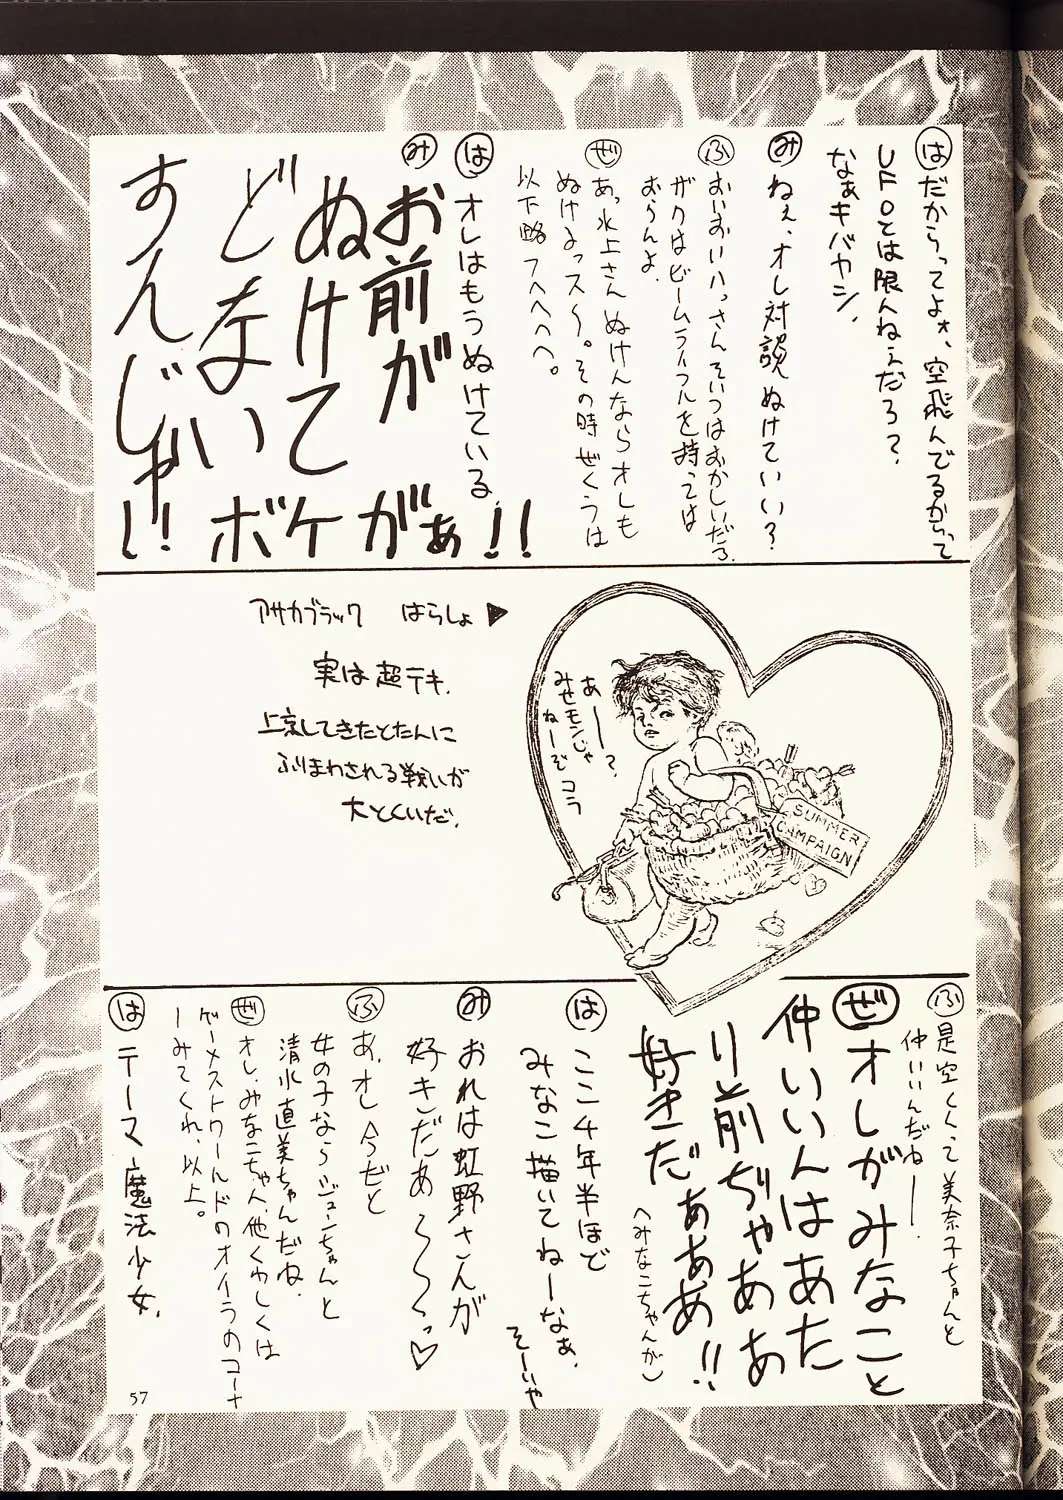 はだからってよォ、空飛んでるからって
UFOとは限んねェだろ?
なぁキバヤシ、
みねぇ、オレ対談ぬけていい?
ふおいおいハっさんそいつはおかしいだろ、
ザクはビームライフルを持っては
おらんよ.
ぜあっ水上さんぬけんならオレも
ぬけるっス〜。その時ぜくうは
以下略フヘヘヘヘ。
はオレはもうぬけている
みお前が
ぬけて
どないす
すんじゃい!
ボケがぁ!!
アサカブラック はらしょ▶
実は超テキ.
上京してきたとたんに
ふりまわされる戦いが
大とくいだ.
あーー?
みせモンじゃ
ねーぞコラ
SUMMER
CAMPAIGN
ふ是空くくて美奈子ちゃんと
仲いいんだねー.
ぜオレがみなこと
仲いいんはあた
り前ぢゃああ
好きだぁああ!!
(みなこちゃんが)
はここ4年半ほど
みなこ描いてねーなぁ、
そーいや
みおれは虹野さんが
好きだぁ〜〜〜っ♡
ふあ、オレ今だと
女の子ならジューンちゃんと
清水直美ちゃんだね.
ぜオレ、みなこちゃん、他くゎしくは
ゲーメストワールドのオイラのコーナ
ーみてくれ、以上。
はテーマ魔法少女.
57